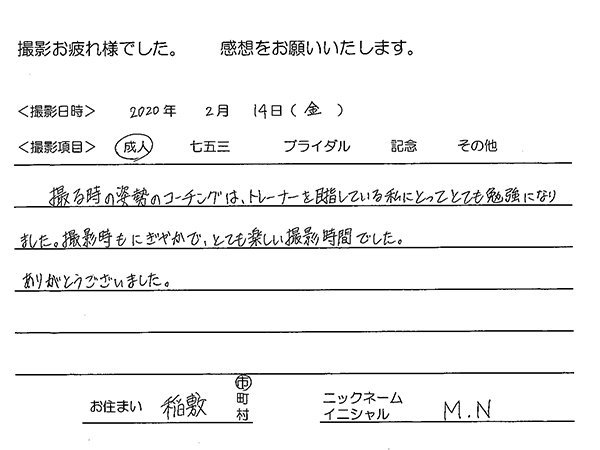 撮影お疲れ様でした。 感想をお願いいたします。
<撮影日時> 2020年 2月 14日(金)
<撮影項目> 成人 七五三 ブライダル 記念 その他
撮る時の姿勢のコーチングは、トレーナーを目指している私にとってとても勉強になり
ました。撮影時もにぎやかで、とても楽しい撮影時間でした。
ありがとうございました。
お住まい 稲敷 市町村 ニックネーム イニシャル M.N